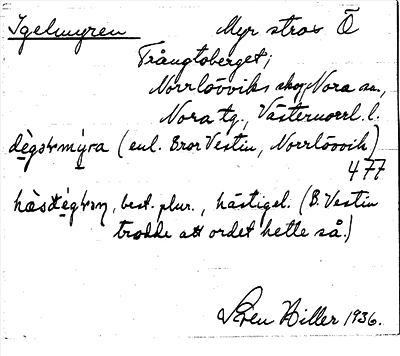 Igelmyren Myr strax Ö
Trångtoberget;
Norrlövviks skog, Nora sn,
Nora tg., Västernorrl. l.
(enl. Bror Vestin, Norrlövvik)
477
best. plur., hästigel. (B. Vestin
trodde att ordet hette så.)
Sven Hiller 1936.